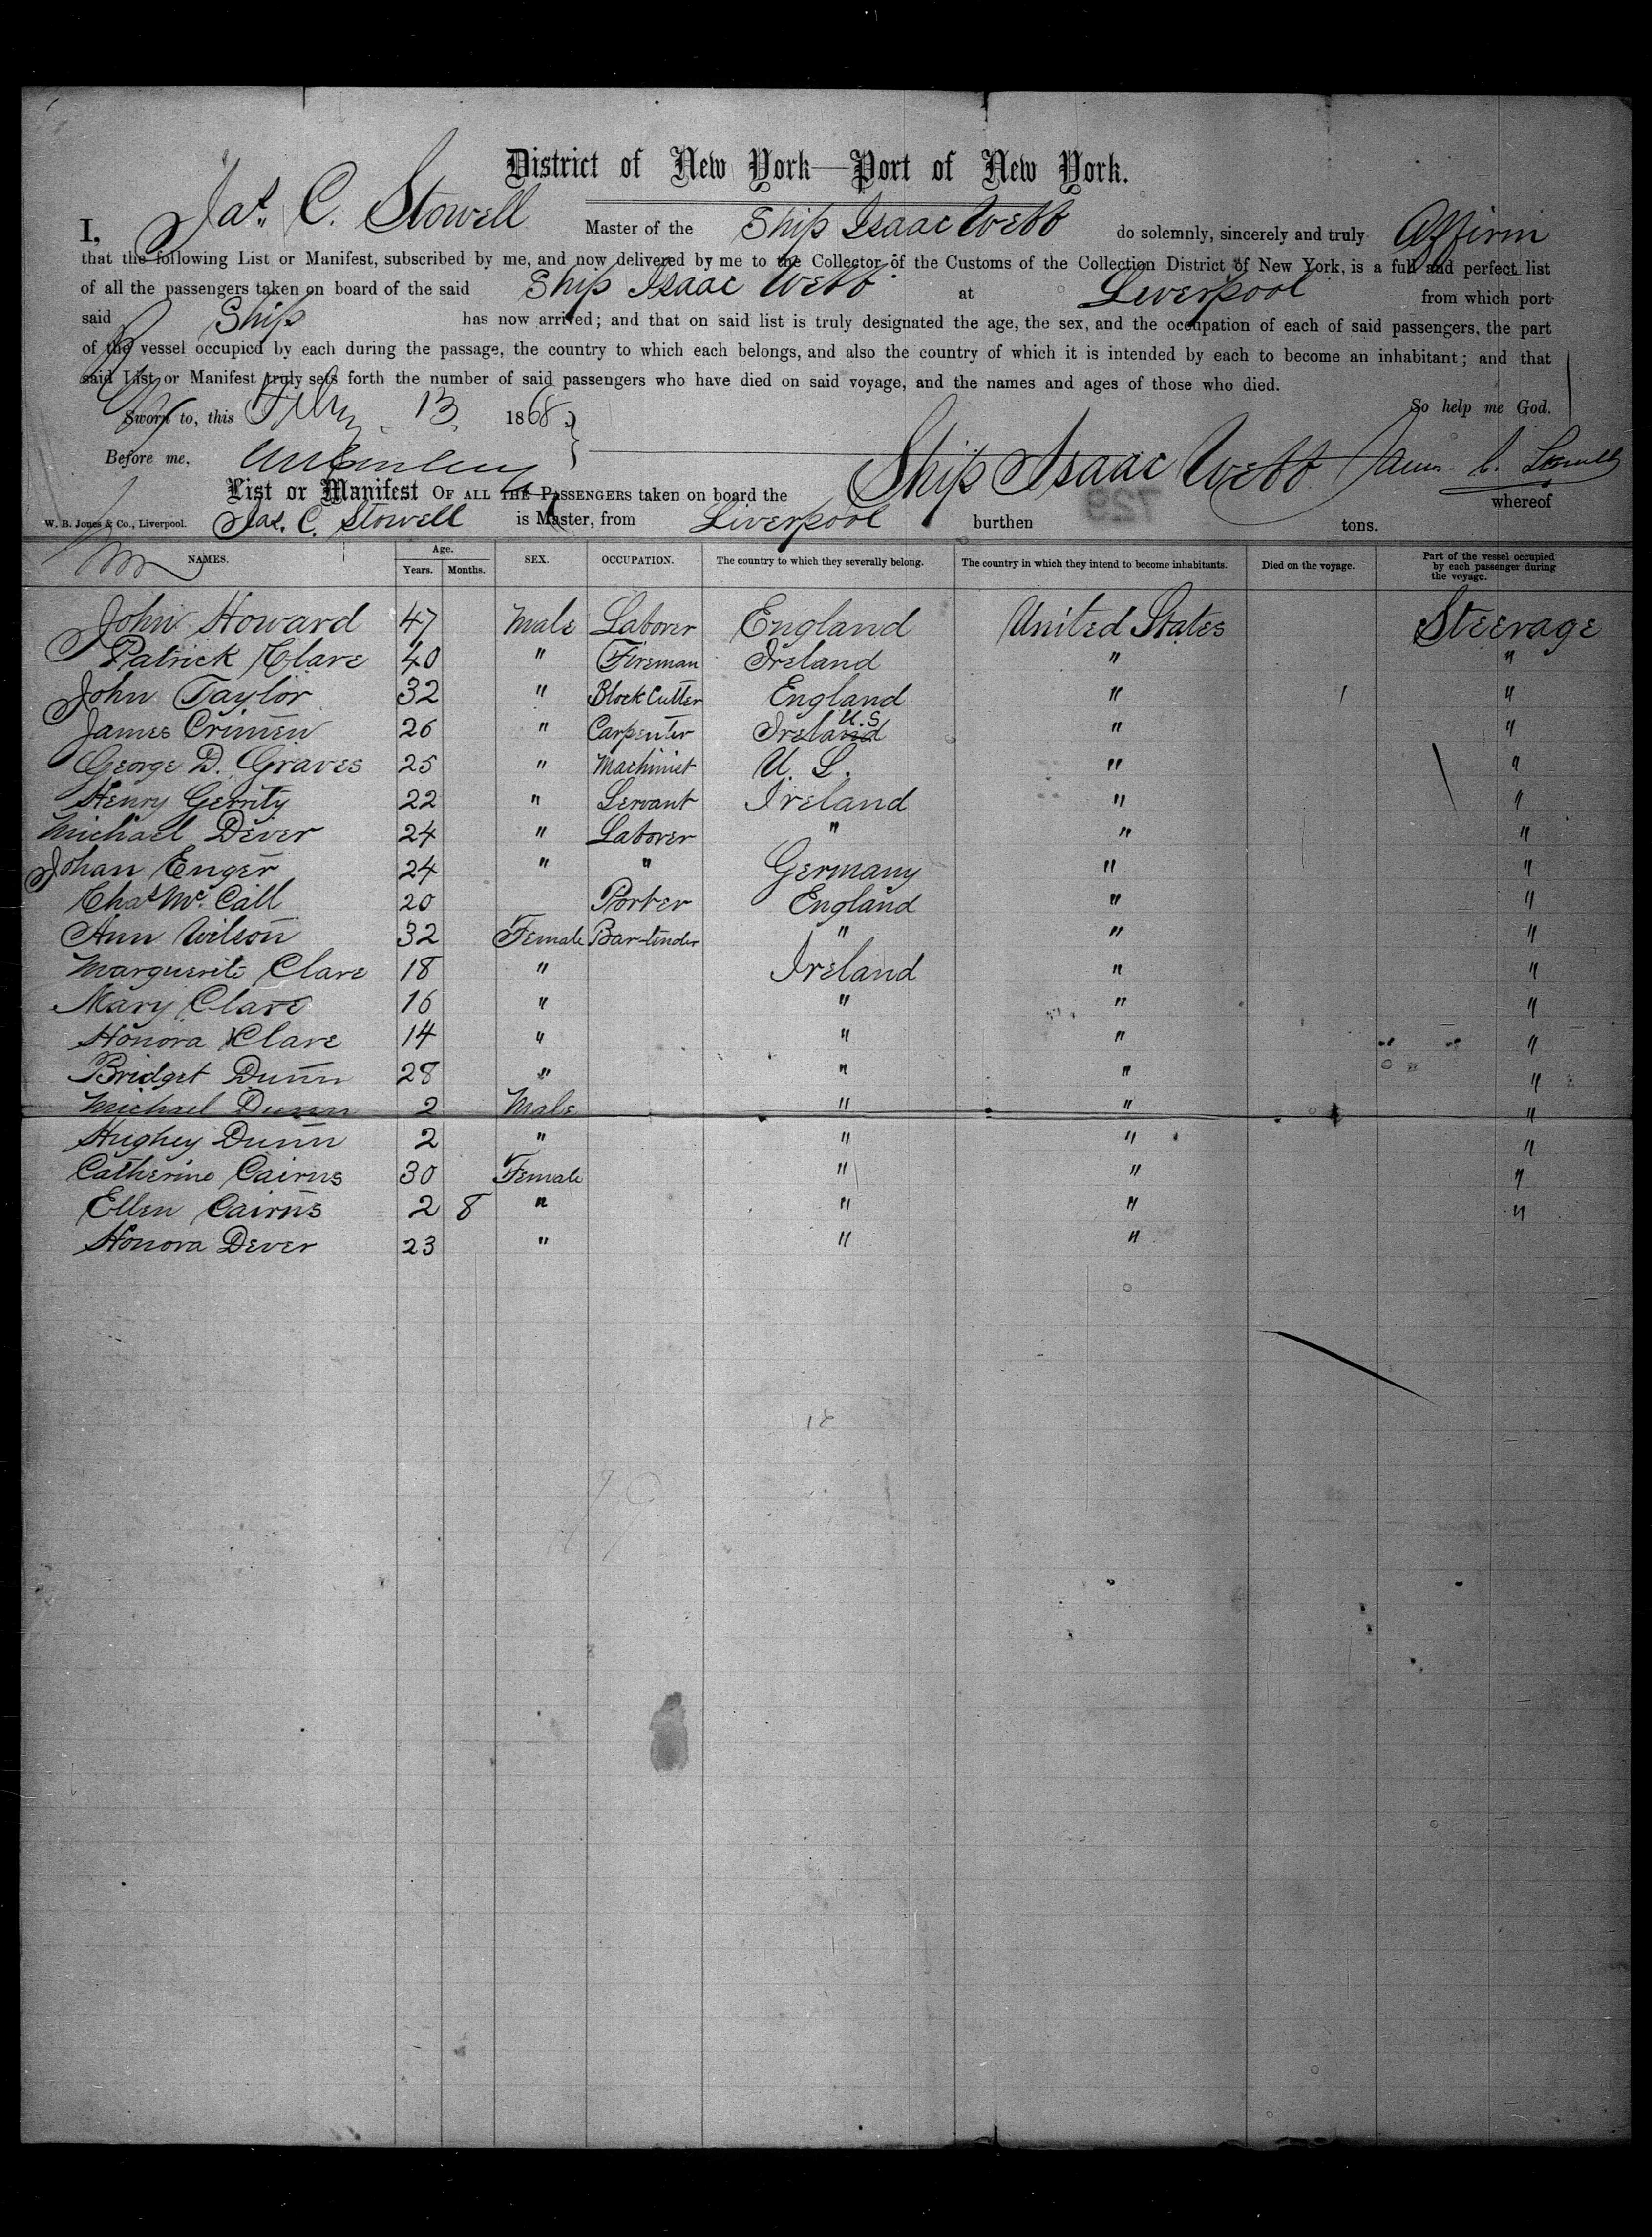 District of New York—Port of New York.
I, Jas. C. Stowell Master of the Ship Isaac Webb do solemnly, sincerely and truly Affirm
that the following List or Manifest, subscribed by me, and now delivered by me to the Collector of the Customs of the Collection District of New York, is a full and perfect list
of all the passengers taken on board of the said Ship Isaac Webb at Liverpool from which port
said Ship has now arrived; and that on said list is truly designated the age, the sex, and the occupation of each of said passengers, the part
of the vessel occupied by each during the passage, the country to which each belongs, and also the country of which it is intended by each to become an inhabitant; and that
said List or Manifest truly sets forth the number of said passengers who have died on said voyage, and the names and ages of those who died.
Sworn to, this Feby. 13. 1868. So help me God.
Before me, Ship Isaac Webb James C. Stowell
List or Manifest OF ALL THE PASSENGERS taken on board the whereof
729
W. B. Jones & Co., Liverpool. Jas. C. Stowell is Master, from Liverpool burthen tons.
NAMES. Age. Years. Months. SEX. OCCUPATION. The country to which they severally belong. The country in which they intend to become inhabitants. Died on the voyage. Part of the vessel occupied by each passenger during the voyage.
John Howard 47 Male Laborer England United States Steerage
Patrick Clare 40 " Fireman Ireland " "
John Taylor 32 " Block Cutter England " "
James Crimen 26 " Carpenter Ireland U.S " "
George D. Graves 25 " Machinist U. S. " "
Henry Gerrity 22 " Servant Ireland " "
Michael Dever 24 " Laborer " " "
Johan Enger 24 " " Germany " "
Chas Mc. Call 20 Porter England " "
Ann Wilson 32 Female Bar-tender " " "
Marguerite Clare 18 " Ireland " "
Mary Clare 16 " " " "
Honora Clare 14 " " " "
Bridget Dunn 28 " " " "
Michael Dunn 2 Male " " "
Hughey Dunn 2 " " " "
Catherine Cairns 30 Female " " "
Ellen Cairns 2 8 " " " "
Honora Dever 23 " " "
18
19